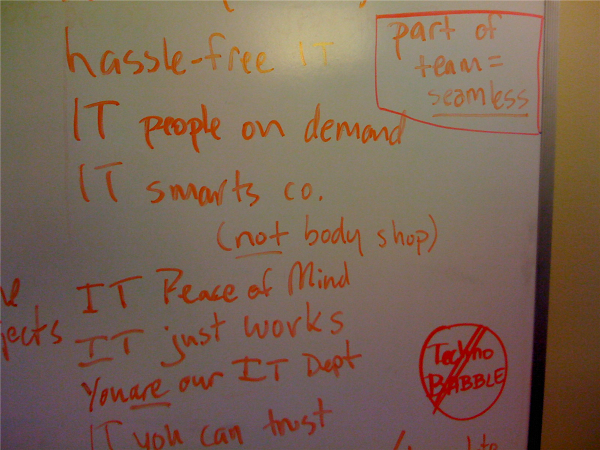 hassle-free IT
part of
team =
seamless
IT people on demand
IT smarts co.
(not body shop)
IT Peace of Mind
IT just works
You are our IT Dept
IT you can trust
Techno
BABBLE